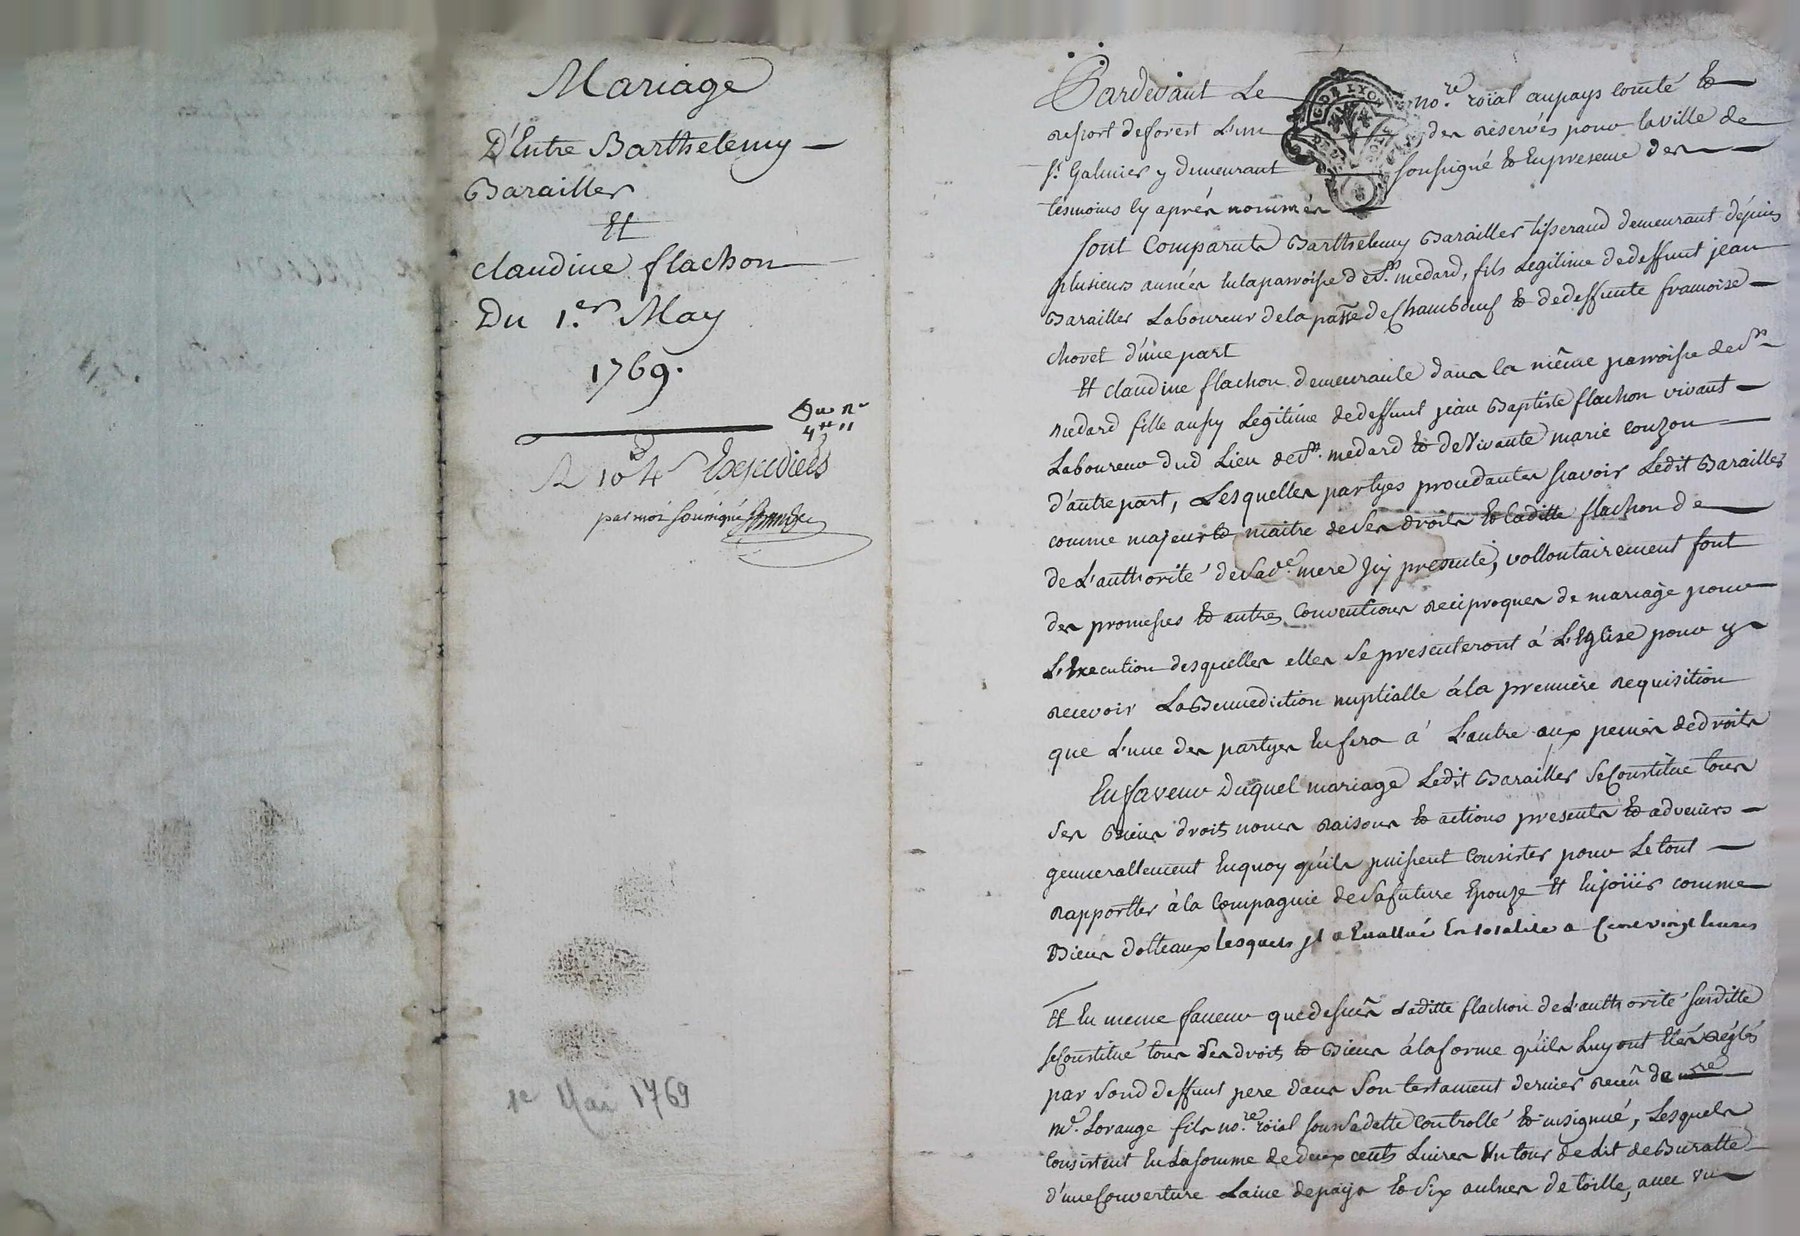 Mariage
D'Entre Barthelemy
Barailler
Et
Claudine flachon
Du 1.er May
1769.
R 10 4 Expediees
par moi soussigné
1e Mai 1769
Pardevant Le no.re roïal au pays comté et
resort de forest L'un des reservés pour la ville de
st. Galmier y demeurant soussigné et En presence des
tesmoins Cy aprés nommés
sont Comparuts Barthelemy Barailler tisserand demeurant dépuis
plusieurs années En la parroisse de St. medard, fils Legitime de deffunt jean
Barailler Laboureur de la passe de Chambœuf et de deffunte francoise
chovet d'une part
Et claudine flachon demeurante dans la même parroisse de St
medard fille aussy Legitime de deffunt jean Baptiste flachon vivant
Laboureur dud Lieu de St. medard et de Vivante marie couzon
d'autre part, Lesquelles partyes proceddantes scavoir Ledit Barailler
comme majeur et maitre de ses droits et laditte flachon de
de L'authorité de sad.e mere jcy presente, vollontairement font
des promesses et autres Conventions reciproques de mariage pour
L'Execution desquelles elles se presenteront á L'Eglise pour y
recevoir La Bennediction nuptialle á la premiére requisition
que L'une des partyes En fera á L'autre aux peines de droits
En faveur Duquel mariage Ledit Barailler se Constitue tous
ses Biens droits noms raisons et actions presents et advenirs
gennerallement En quoy qu'ils puissent Consister pour Le tout
rapportter á la Compagnie de sa future Epouze Et En joüir comme
Biens dotteaux lesquels jl a Evallué En totalité a Cent vingt livres
Et En meme faveur que dessus Laditte flachon de L'authorité susditte
se Constitue tous ses droits et Biens á la forme qu'ils Luy ont Etés réglés
par sond deffunt pere dans son testament dernier receu de
me. Lorange fils no.re roïal sous sa datte Controllé et insignué, Lesquels
Consistent En La somme de deux cents Livres Un tour de Lit de Buratte
d'une Couverture Laine de pays et six aulnes de toille, avec un